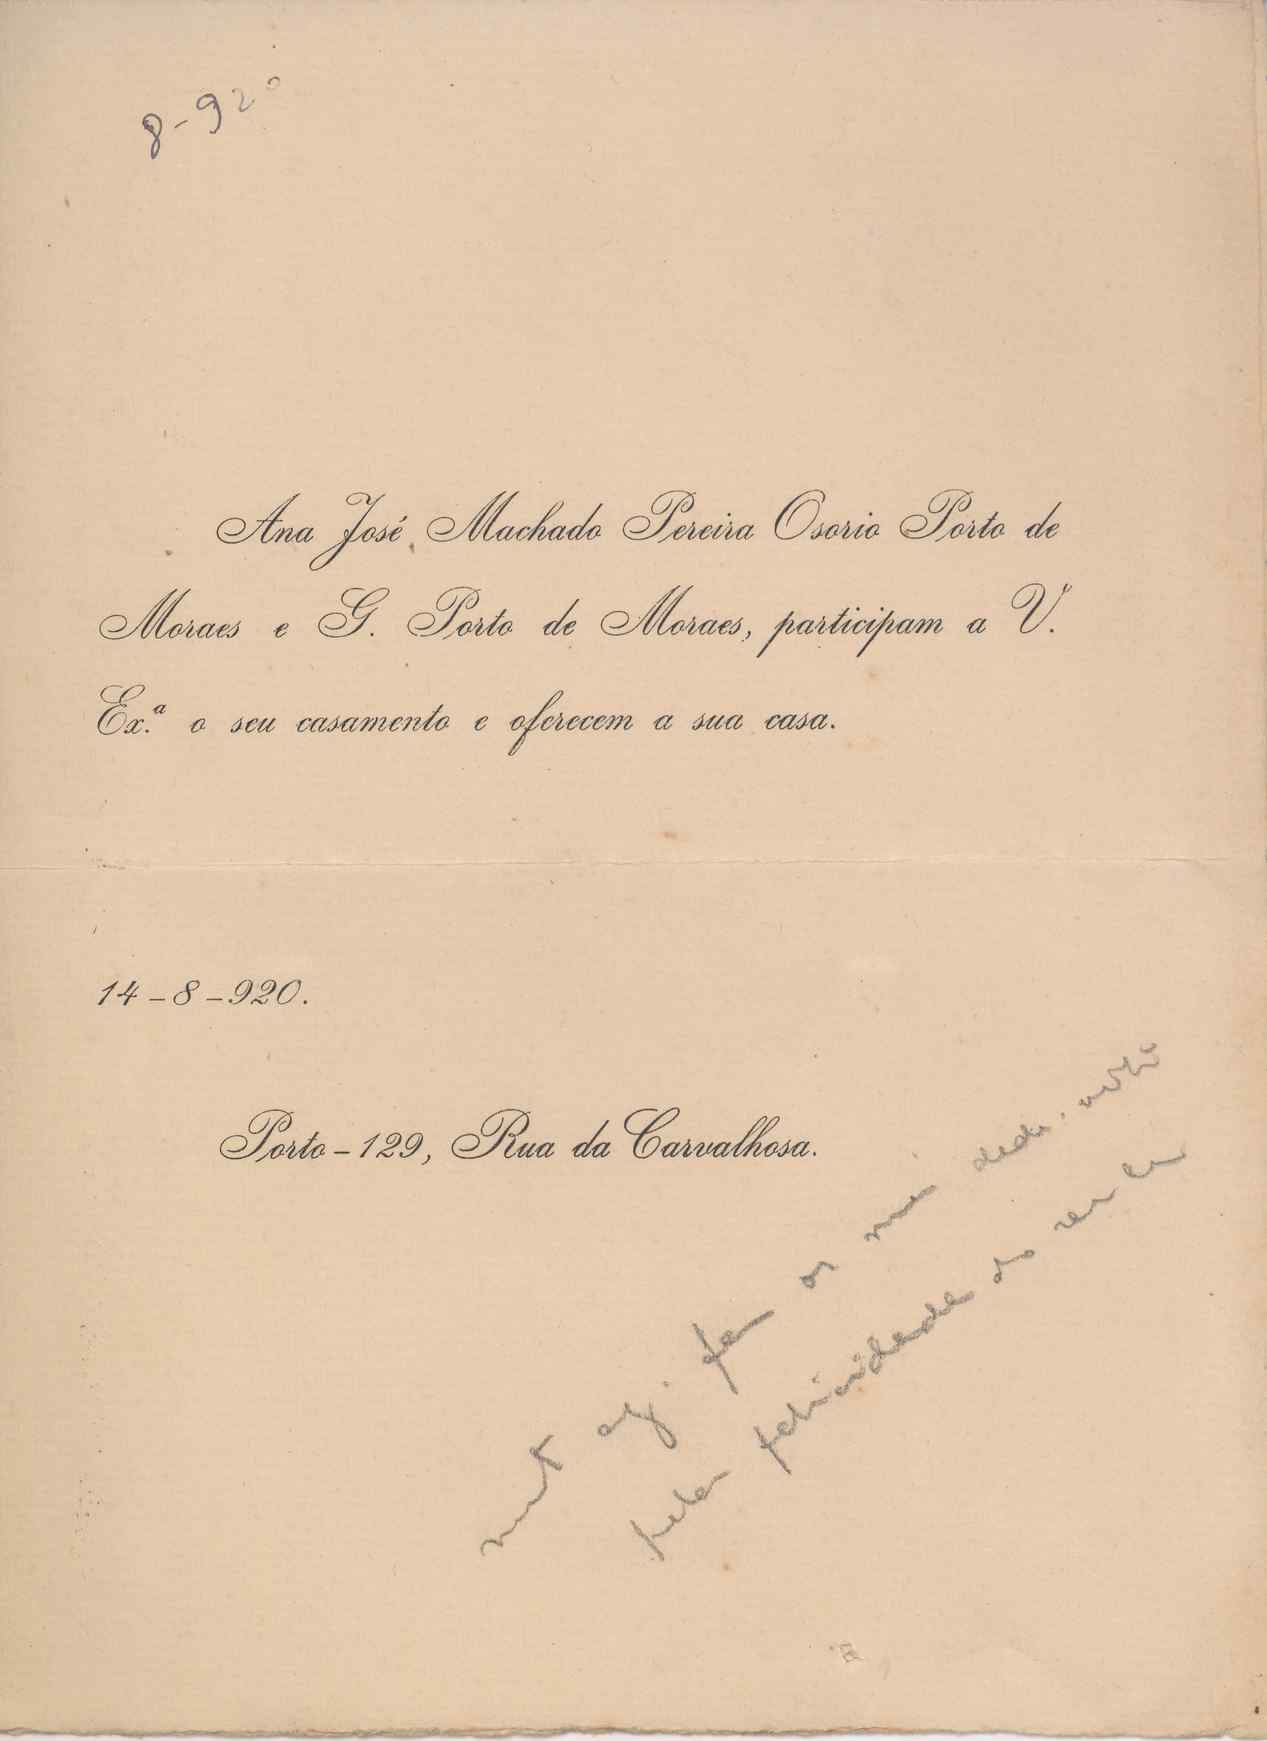 8-920
Ana José Machado Pereira Osorio Porto de
Moraes e G. Porto de Moraes, participam a V.
Ex.ª o seu casamento e oferecem a sua casa.
14-8-920.
Porto-129, Rua da Carvalhosa.
pela felicidade do seu